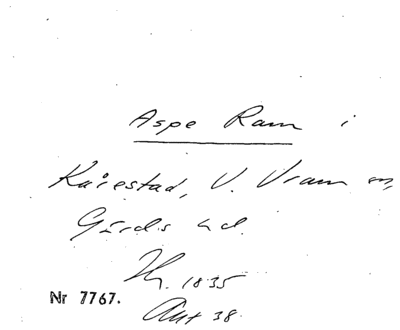 Aspe Ram i
Kårestad, V. Vram sn,
Gärds hd.
1835
Nr 7767.
Akt 38.